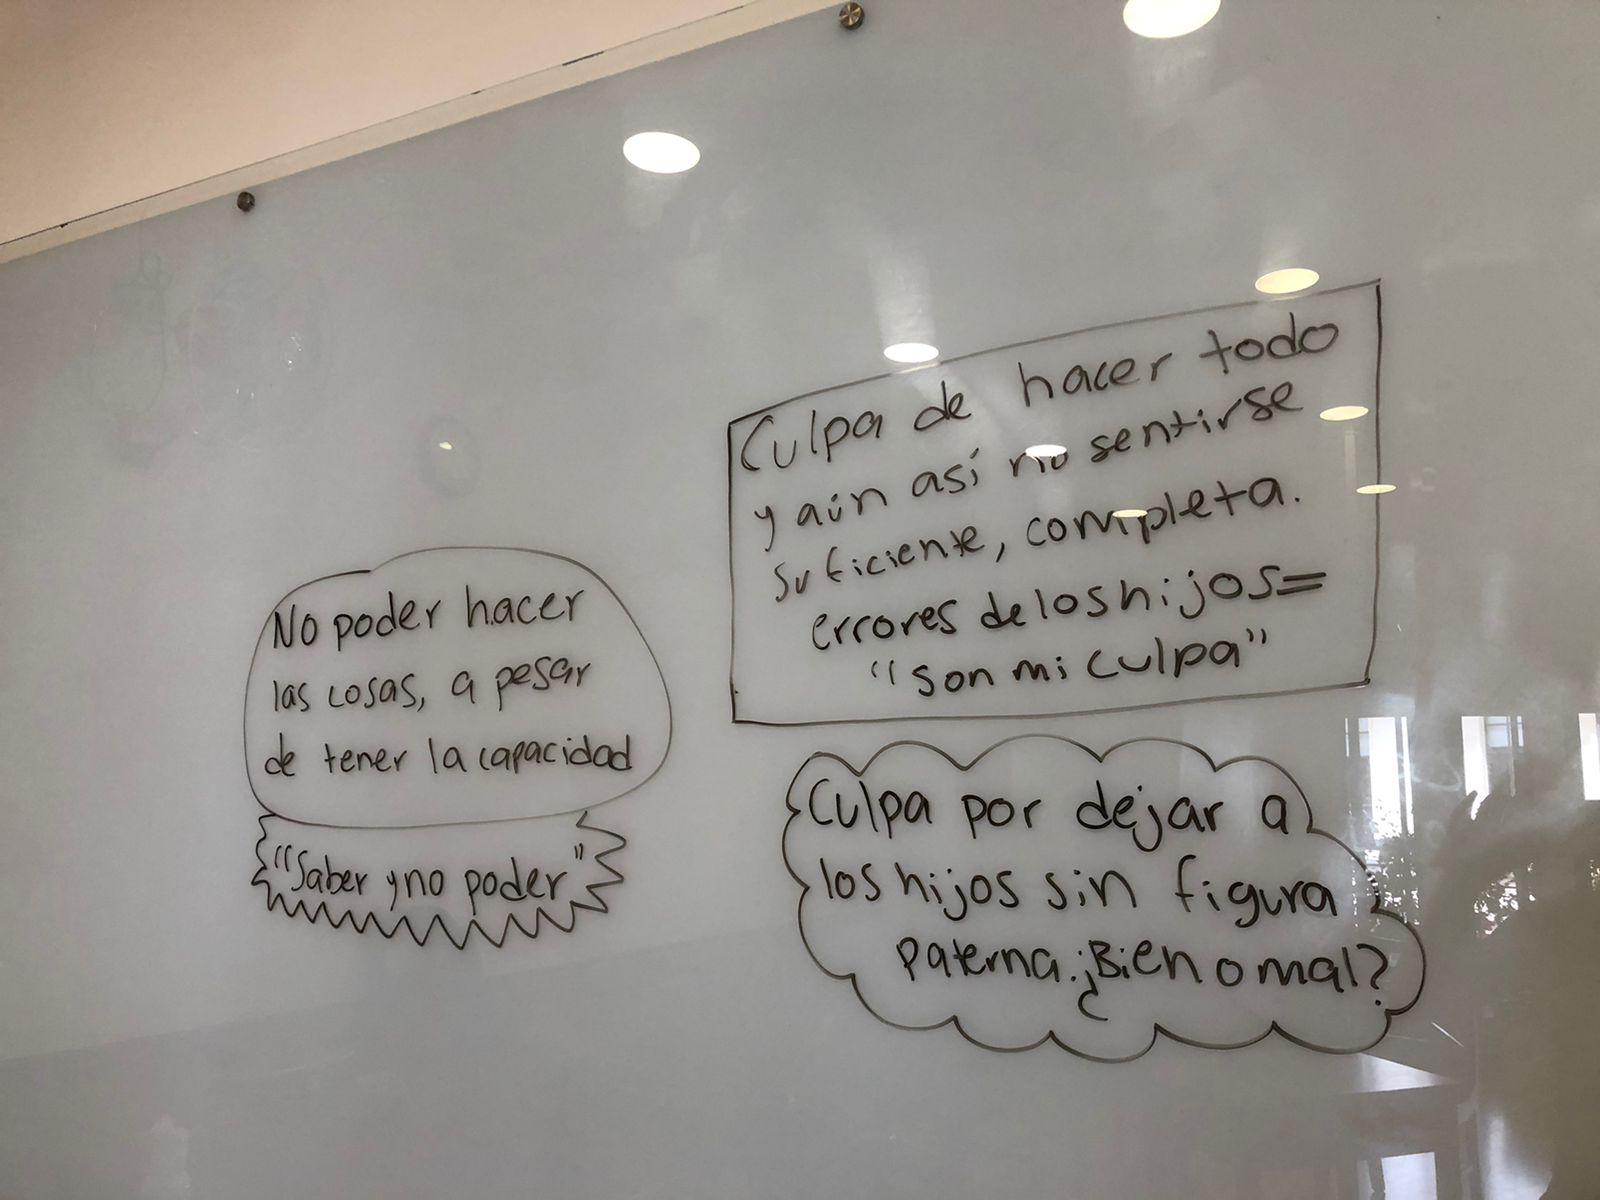 No poder hacer
las cosas, a pesar
de tener la capacidad
"Saber y no poder"
Culpa de hacer todo
y aún así no sentirse
suficiente, completa.
errores de los hijos=
"son mi culpa"
Culpa por dejar a
los hijos sin figura
paterna. ¿Bien o mal?